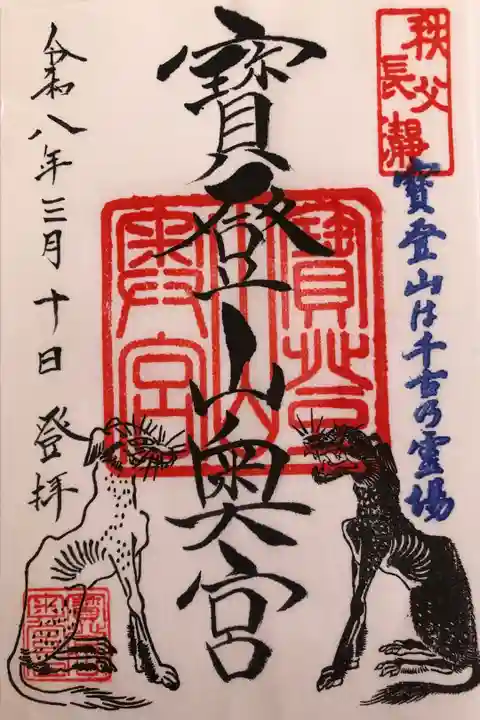 秩父
長瀞
寶登山は千古の霊場
寶登山奥宮
寶登山
奥宮
令和八年三月十日 登拝